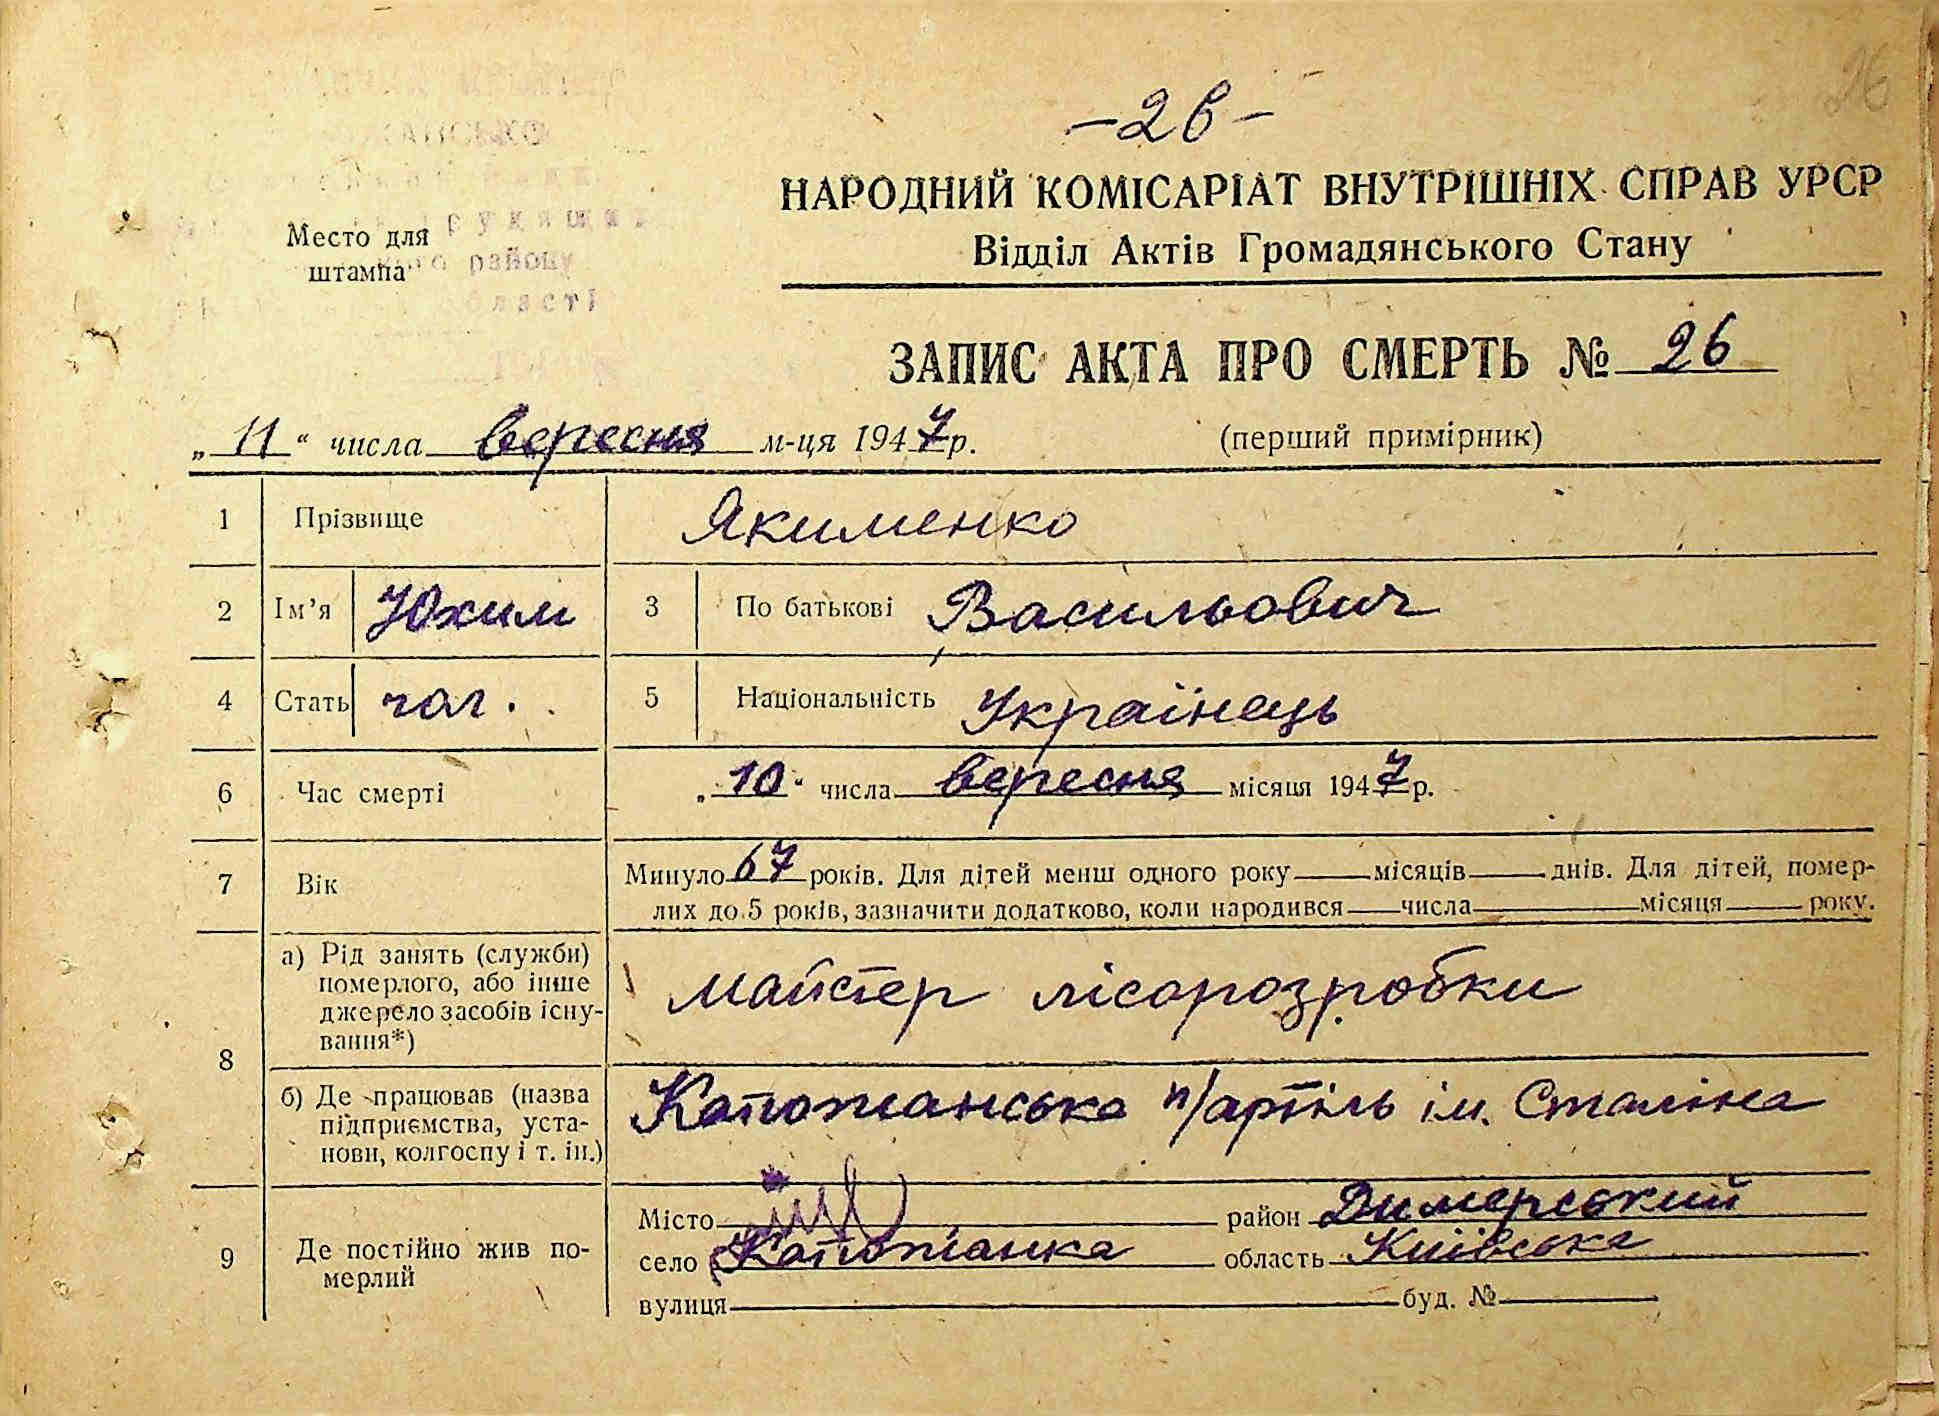 26
- 26 -
НАРОДНИЙ КОМІСАРІАТ ВНУТРІШНІХ СПРАВ УРСР
Відділ Актів Громадянського Стану
Место для
штампа
району
області
ЗАПИС АКТА ПРО СМЕРТЬ № 26
„ 11 “ числа вересня м-ця 1947 р.
(перший примірник)
1 Прізвище Якименко
2 Ім’я Юхим 3 По батькові Васильович
4 Стать чол. 5 Національність Українець
6 Час смерті „ 10 “ числа вересня місяця 1947 р.
7 Вік Минуло 67 років. Для дітей менш одного року — місяців — днів. Для дітей, помер-
лих до 5 років, зазначити додатково, коли народився — числа — місяця — року.
8 а) Рід занять (служби)
померлого, або інше
джерело засобів існу-
вання*)
майстер лісорозробки
б) Де працював (назва
підприємства, уста-
нови, колгоспу і т. ін.)
Катюжанська п/артіль ім. Сталіна
9 Де постійно жив по-
мерлий
Місто район Димерський
село Катюжанка область Київська
вулиця — буд. № —